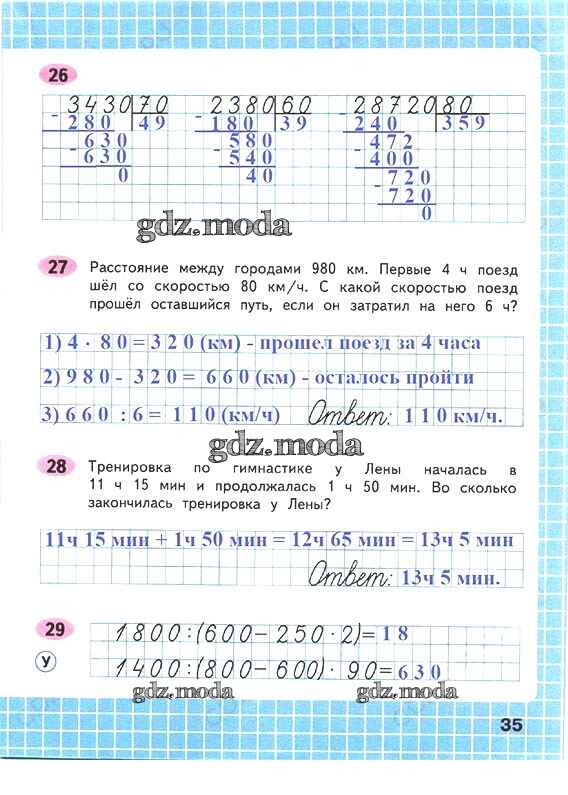 26
3430 70 2380 60 28720 80
- 280 49 - 180 39 - 240 359
- 630 - 580 - 472
- 630 - 540 - 400
0 40 - 720
720
0
gdz.moda
27 Расстояние между городами 980 км. Первые 4 ч поезд
шёл со скоростью 80 км/ч. С какой скоростью поезд
прошёл оставшийся путь, если он затратил на него 6 ч?
1) 4 · 80 = 320 (км) - прошел поезд за 4 часа
2) 980 - 320 = 660 (км) - осталось пройти
3) 660 : 6 = 110 (км/ч) Ответ: 110 км/ч.
gdz.moda
28 Тренировка по гимнастике у Лены началась в
11 ч 15 мин и продолжалась 1 ч 50 мин. Во сколько
закончилась тренировка у Лены?
11ч 15 мин + 1ч 50 мин = 12ч 65 мин = 13ч 5 мин
Ответ: 13ч 5 мин.
29 1800:(600-250·2)=18
У 1400:(800-600)·90=630
gdz.moda gdz.moda
35